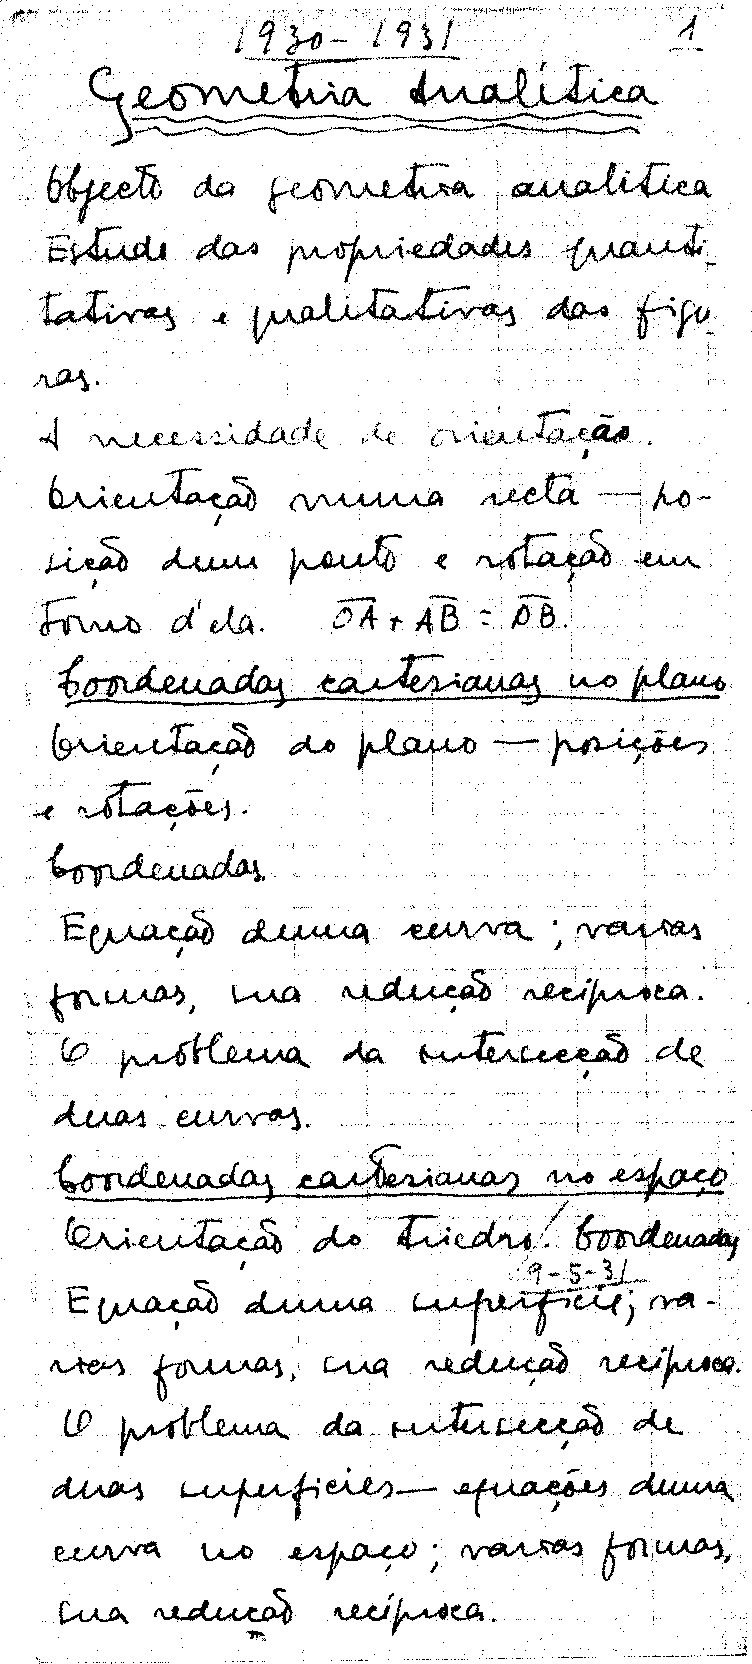 1930-1931 1
Geometria Analítica
Objecto da geometria analitica
Estudo das propriedades quanti-
tativas e qualitativas das figu
ras.
A necessidade de orientação.
Orientação numa recta — po-
sição dum ponto e rotação em
torno d'ela. OA + AB = OB.
Coordenadas cartesianas no plano
Orientação do plano — posições
e rotações.
Coordenadas
Equação duma curva; varias
formas, sua redução recíproca.
O problema da intersecção de
duas curvas.
Coordenadas cartesianas no espaço
Orientação do triedro/. Coordenadas
9-5-31
Equação duma superficie; va-
rias formas, sua redução recíproca.
O problema da intersecção de
duas superficies — equações duma
curva no espaço; varias formas,
sua redução recíproca.